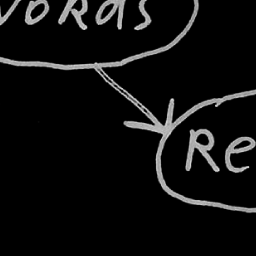 words
Re